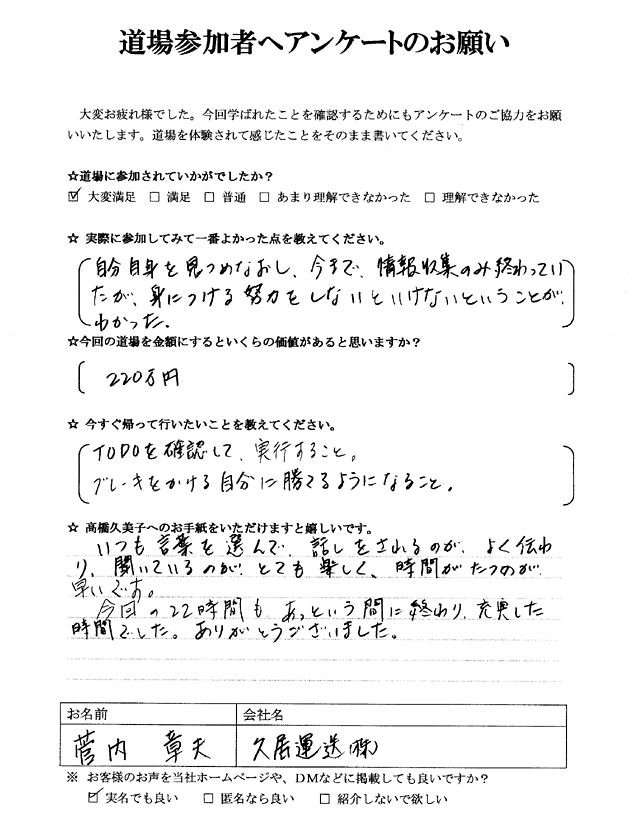 道場参加者へアンケートのお願い
大変お疲れ様でした。今回学ばれたことを確認するためにもアンケートのご協力をお願
いいたします。道場を体験されて感じたことをそのまま書いてください。
☆道場に参加されていかがでしたか？
☑ 大変満足 □ 満足 □ 普通 □ あまり理解できなかった □ 理解できなかった
☆ 実際に参加してみて一番よかった点を教えてください。
自分自身を見つめなおし、今まで、情報収集のみ終わってい
たが、身につける努力をしないといけないということが、
わかった。
☆今回の道場を金額にするといくらの価値があると思いますか？
220万円
☆ 今すぐ帰って行いたいことを教えてください。
TODOを確認して、実行すること。
ブレーキをかける自分に勝てるようになること。
☆ 高橋久美子へのお手紙をいただけますと嬉しいです。
いつも言葉を選んで、話しをされるのが、よく伝わ
り、聞いているのが、とても楽しく、時間がたつのが、
早いです。
今回の22時間も、あっという間に終わり、充実した
時間でした。ありがとうございました。
お名前 会社名
菅内 章夫 久居運送(株)
※ お客様のお声を当社ホームページや、DMなどに掲載しても良いですか？
☑ 実名でも良い □ 匿名なら良い □ 紹介しないで欲しい